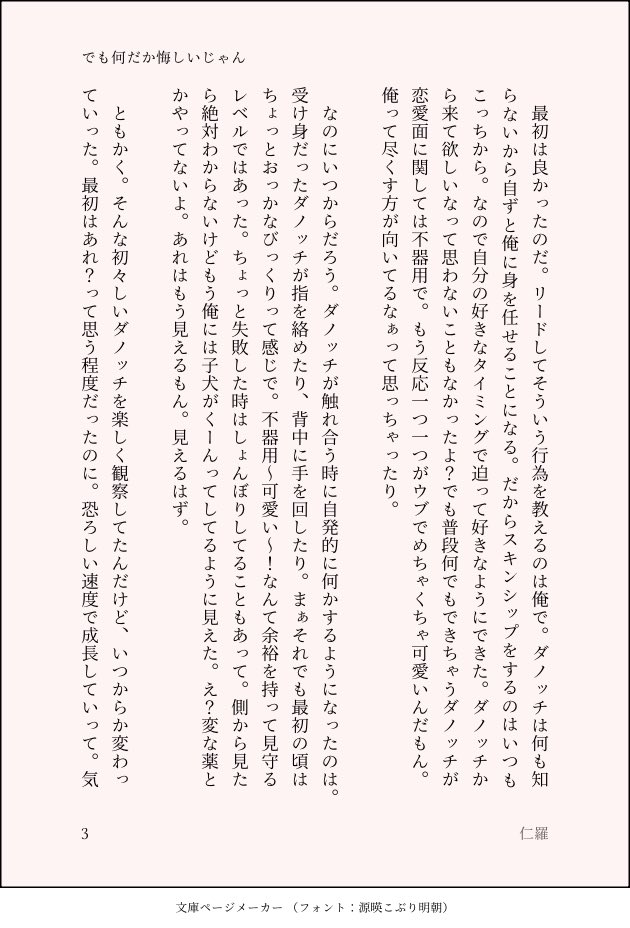 でも何だか悔しいじゃん
最初は良かったのだ。リードしてそういう行為を教えるのは俺で。ダノッチは何も知
らないから自ずと俺に身を任せることになる。だからスキンシップをするのはいつも
こっちから。なので自分の好きなタイミングで迫って好きなようにできた。ダノッチか
ら来て欲しいなって思わないこともなかったよ？でも普段何でもできちゃうダノッチが
恋愛面に関しては不器用で。もう反応一つ一つがウブでめちゃくちゃ可愛いんだもん。
俺って尽くす方が向いてるなぁって思っちゃったり。
なのにいつからだろう。ダノッチが触れ合う時に自発的に何かするようになったのは。
受け身だったダノッチが指を絡めたり、背中に手を回したり。まぁそれでも最初の頃は
ちょっとおっかなびっくりって感じで。不器用〜可愛い〜！なんて余裕を持って見守る
レベルではあった。ちょっと失敗した時はしょんぼりしてることもあって。側から見た
ら絶対わからないけどもう俺には子犬がくーんってしてるように見えた。え？変な薬と
かやってないよ。あれはもう見えるもん。見えるはず。
ともかく。そんな初々しいダノッチを楽しく観察してたんだけど、いつからか変わっ
ていった。最初はあれ？って思う程度だったのに。恐ろしい速度で成長していって。気
3
仁羅
文庫ページメーカー （フォント：源暎こぶり明朝）